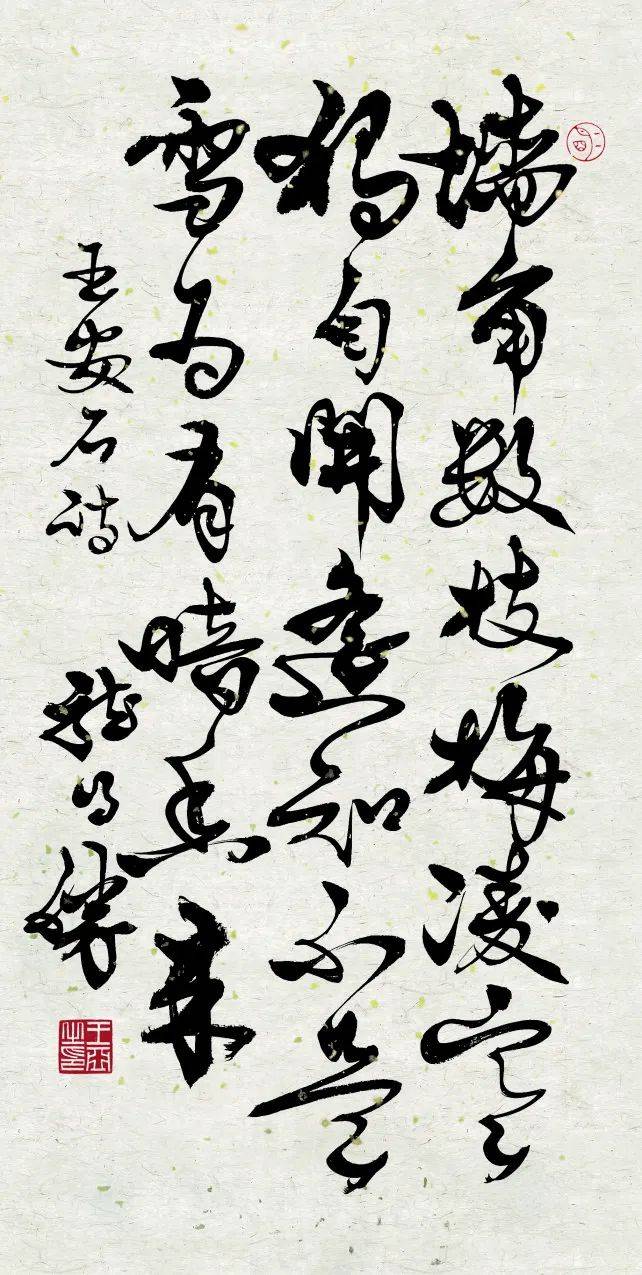 墙角数枝梅凌寒
獨自開遥知不是
雪为有暗香来
王安石诗